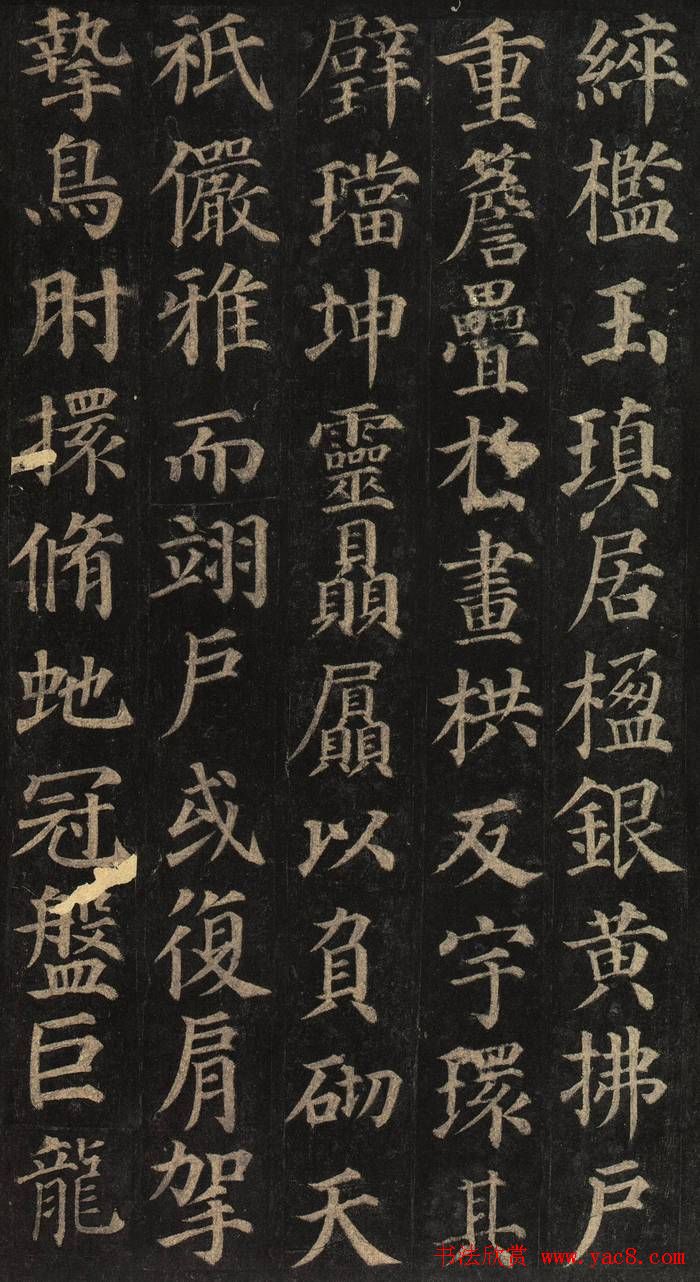 綷檻玉瑱居楹銀黄拂户
重簷疊於畫栱反宇環其
璧璫坤靈贔屭以負砌天
祇儼雅而翊户或復肩挐
摯鳥肘擐脩虵冠盤巨龍
书法欣赏 www.yac8.com